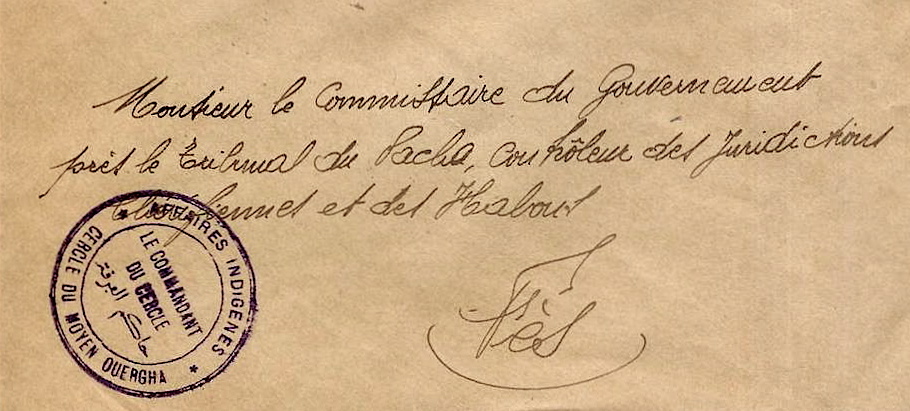 Monsieur le Commissaire du Gouvernement
près le Tribunal du Pacha, Contrôleur des Juridictions
Chérifiennes et des Habous
Fès
* AFFAIRES INDIGÈNES *
CERCLE DU MOYEN OUERGHA
LE COMMANDANT
DU CERCLE
حاكم